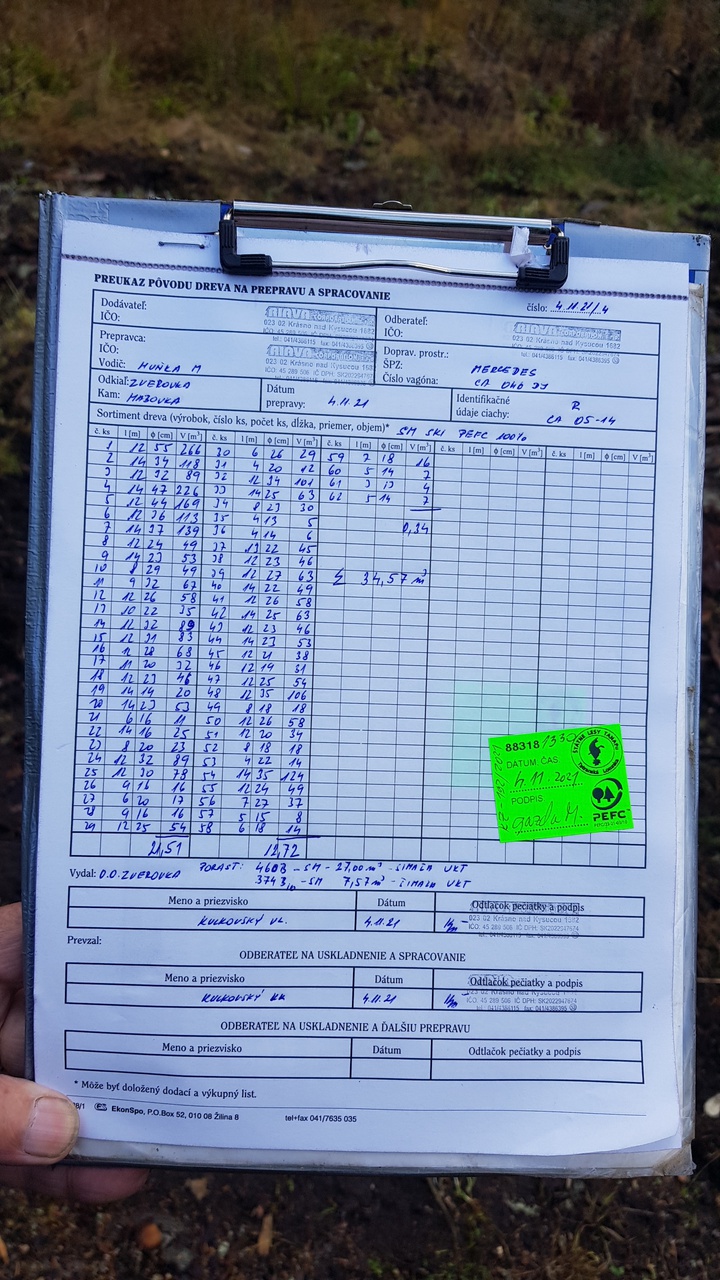 PREUKAZ PÔVODU DREVA NA PREPRAVU A SPRACOVANIE
číslo: 4.11 21/4
Dodávateľ:
IČO:
023 02 Krásno nad Kysucou 1682
Odberateľ:
IČO:
023 02 Krásno nad Kysucou 1682
Prepravca:
IČO:
Vodič: HUŇKA M
Doprav. prostr.: MERCEDES
ŠPZ:
Číslo vagóna: CA
Odkiaľ: ZVEROVKA
Kam: HAJOVKA
Dátum
prepravy: 4.11 21
Identifikačné
údaje ciachy: R
CA 05-14
Sortiment dreva (výrobok, číslo ks, počet ks, dĺžka, priemer, objem)* SM SKI PEFC 100%
č. ks l [m] ϕ [cm] V [m³] č. ks l [m] ϕ [cm] V [m³] č. ks l [m] ϕ [cm] V [m³] č. ks l [m] ϕ [cm] V [m³] č. ks l [m] ϕ [cm] V [m³]
1 12 55 266 30 6 26 29 59 7 18 16
2 14 34 118 31 4 20 12 60 5 14 7
3 12 32 89 32 12 34 101 61 3 13 4
4 14 47 226 33 14 25 63 62 5 14 7
5 12 44 169 34 8 23 30
6 12 36 113 35 4 13 5 0,34
7 14 37 139 36 4 14 6
8 12 24 49 37 13 22 45
9 14 23 53 38 12 23 46
10 8 29 49 39 12 27 63 Σ 34,57 m³
11 9 32 67 40 14 22 49
12 12 26 58 41 12 26 58
13 10 22 35 42 14 25 63
14 12 32 89 43 12 23 46
15 12 31 83 44 14 23 53
16 12 28 68 45 12 21 38
17 11 20 32 46 12 19 31
18 12 23 46 47 12 25 54
19 14 14 20 48 12 35 106
20 14 23 53 49 8 18 18
21 6 16 11 50 12 26 58
22 14 16 25 51 12 20 34
23 8 20 23 52 8 18 18
24 12 32 89 53 4 22 14
25 12 30 78 54 14 35 124
26 9 16 16 55 12 24 49
27 6 20 17 56 7 27 37
28 9 16 16 57 5 15 8
29 12 25 54 58 6 18 14
21,51 12,72
88318/330
DATUM, ČAS
4.11.2021
PODPIS
gazda M.
ŠTÁTNE LESY TANAPU
PEFC
Vydal: O.O. ZVEROVKA PORAST: 460B - SM - 27,00 m³ - ČIMAĽA UKT
374 - SM 7,57 m³ - ČIMAĽA UKT
Meno a priezvisko Dátum Odtlačok pečiatky a podpis
KULKOVSKÝ VL. 4.11 21
023 02 Krásno nad Kysucou 1682
IČO: 45 289 506 IČ DPH: SK2022947674
Prevzal:
ODBERATEĽ NA USKLADNENIE A SPRACOVANIE
Meno a priezvisko Dátum Odtlačok pečiatky a podpis
KULKOVSKÝ 4.11 21
IČO: 45 289 506 IČ DPH: SK2022947674
ODBERATEĽ NA USKLADNENIE A ĎALŠIU PREPRAVU
Meno a priezvisko Dátum Odtlačok pečiatky a podpis
* Môže byť doložený dodací a výkupný list.
EkonSpo, P.O.Box 52, 010 08 Žilina 8 tel+fax 041/7635 035